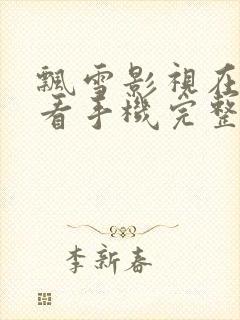 飄雪影視在
看手機完整
李新春